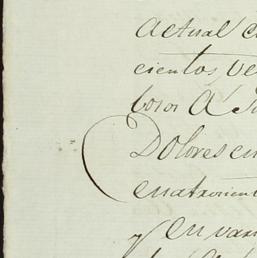 actual c
cientos, ve
Dolores en
cuatrocient
y en var